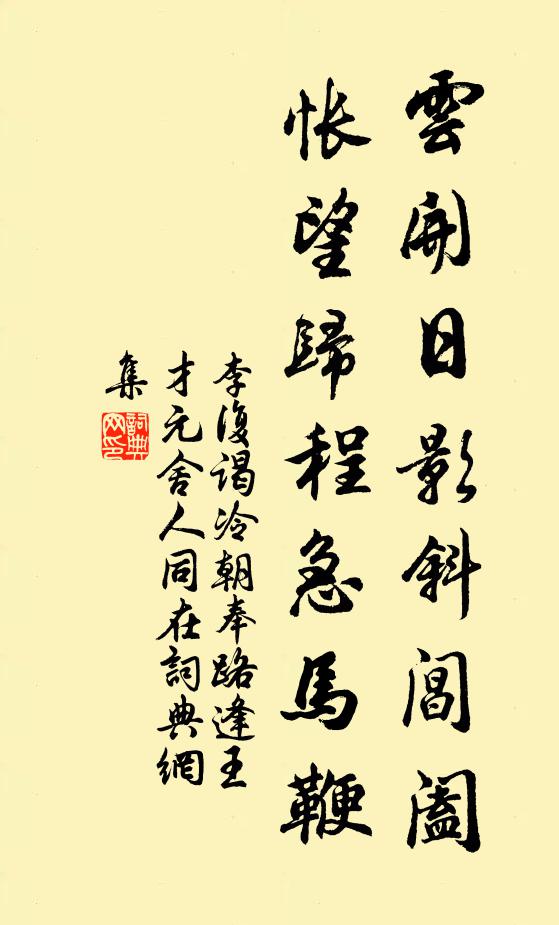 雲開日影斜閶闔
悵望歸程急馬鞭
李復謁冷朝奉路逢王
才元舍人同在詞典網
集
詞典網印